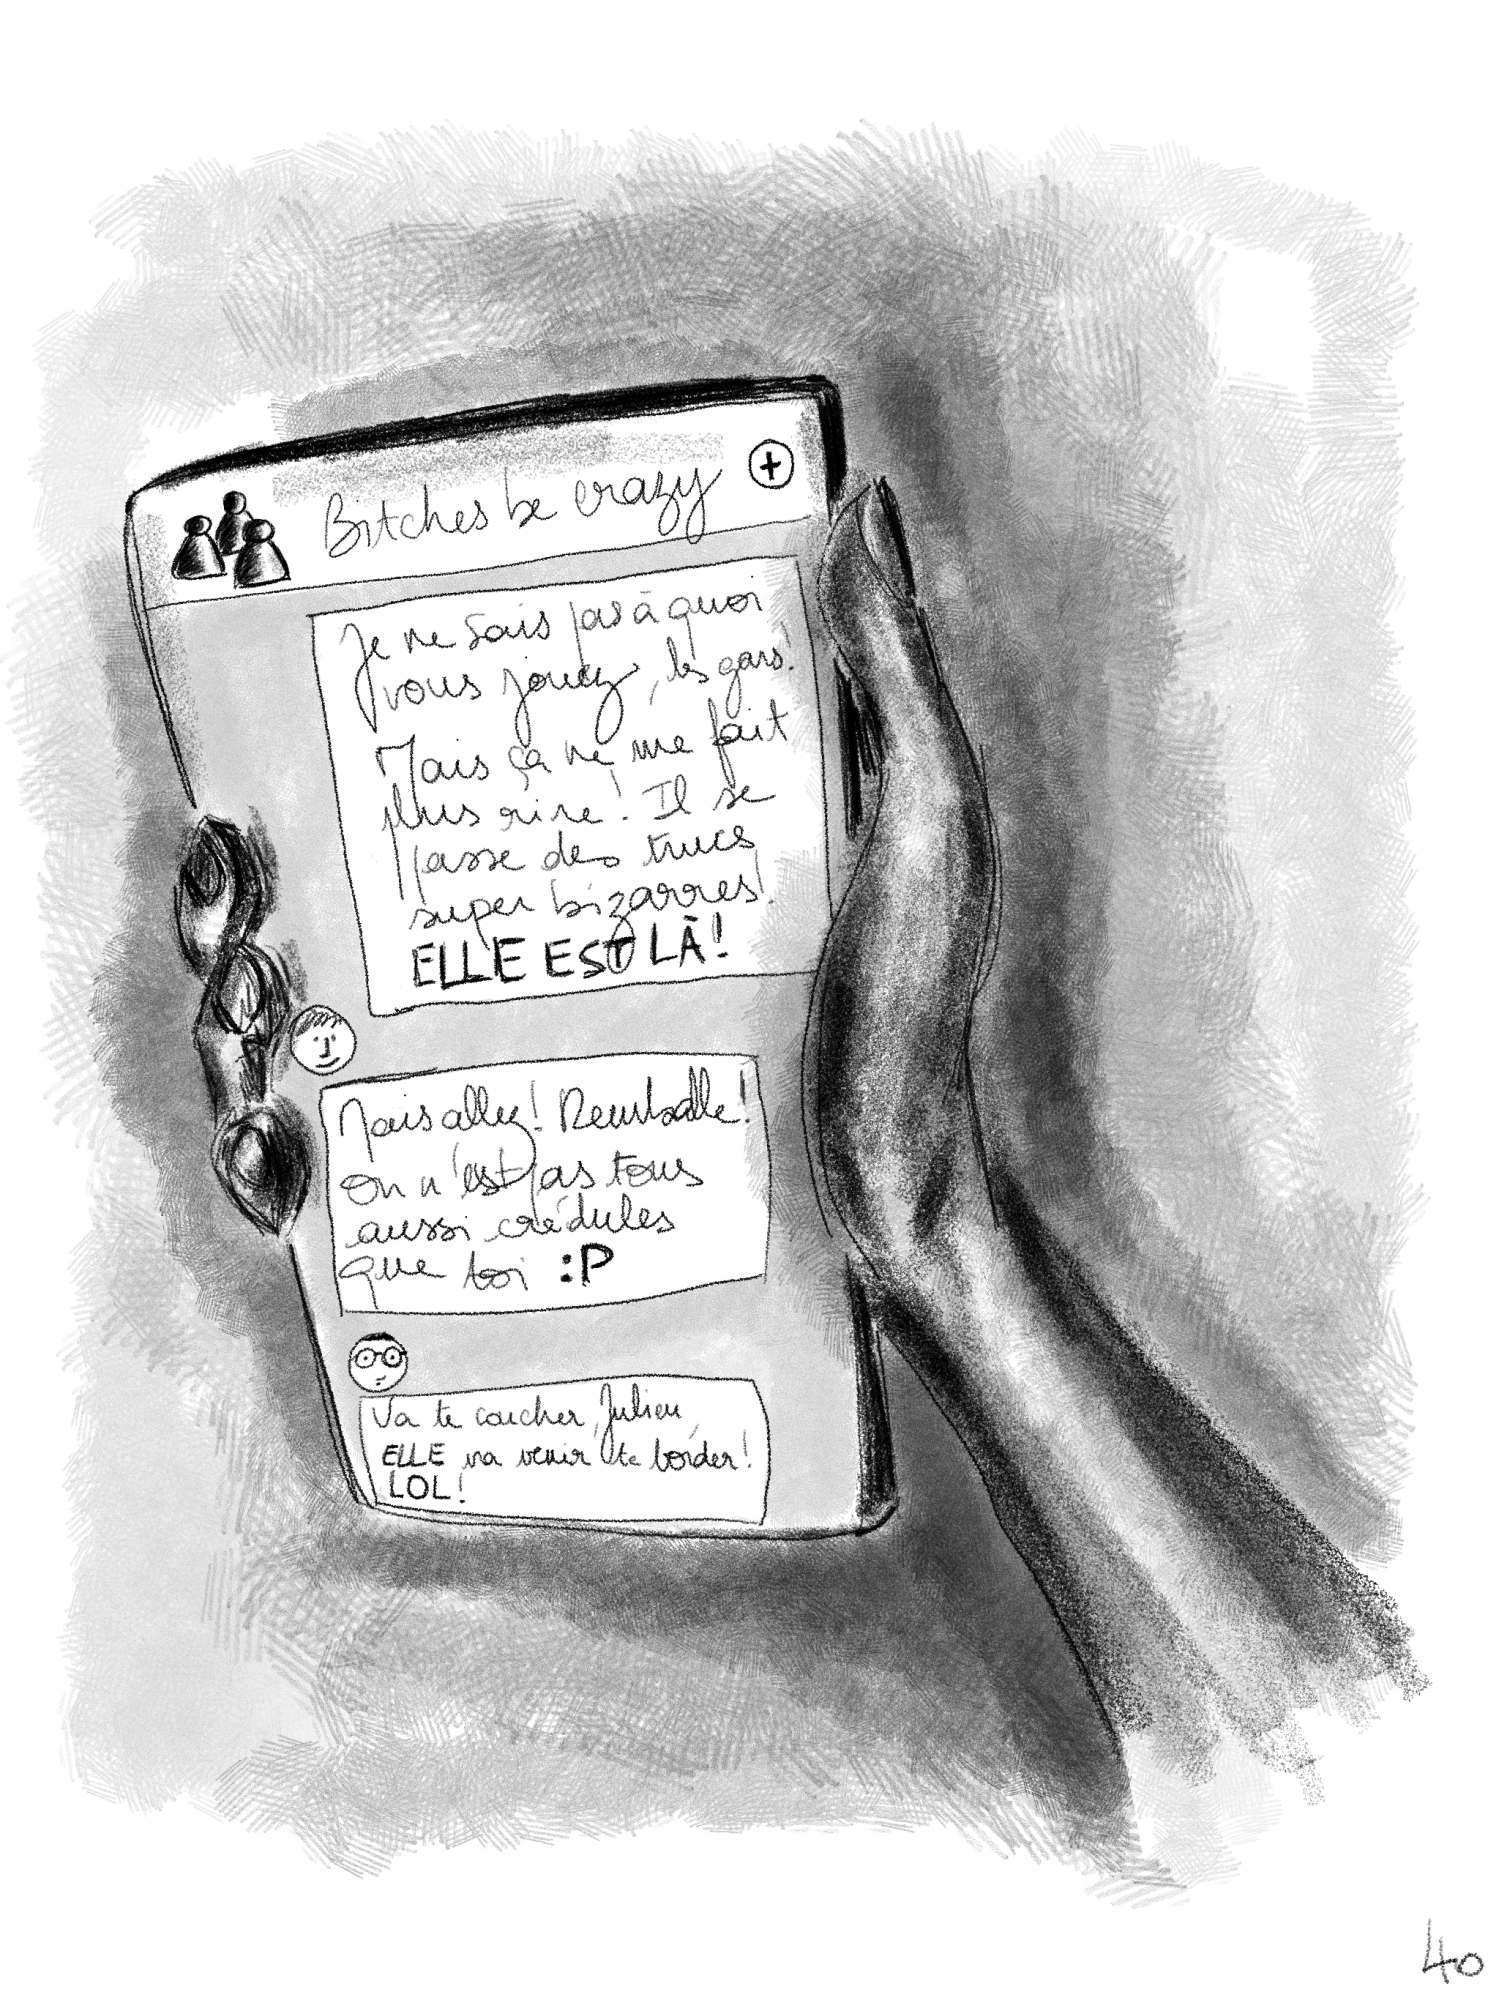 Bitches be crazy
Je ne sais pas à quoi
vous jouez, les gars!
Mais ça ne me fait
plus rire! Il se
passe des trucs
super bizarres!
ELLE EST LÀ!
Mais allez! Remballe!
On n'est pas tous
aussi crédules
que toi :P
Va te coucher, Julien,
ELLE va venir te border!
LOL!
40